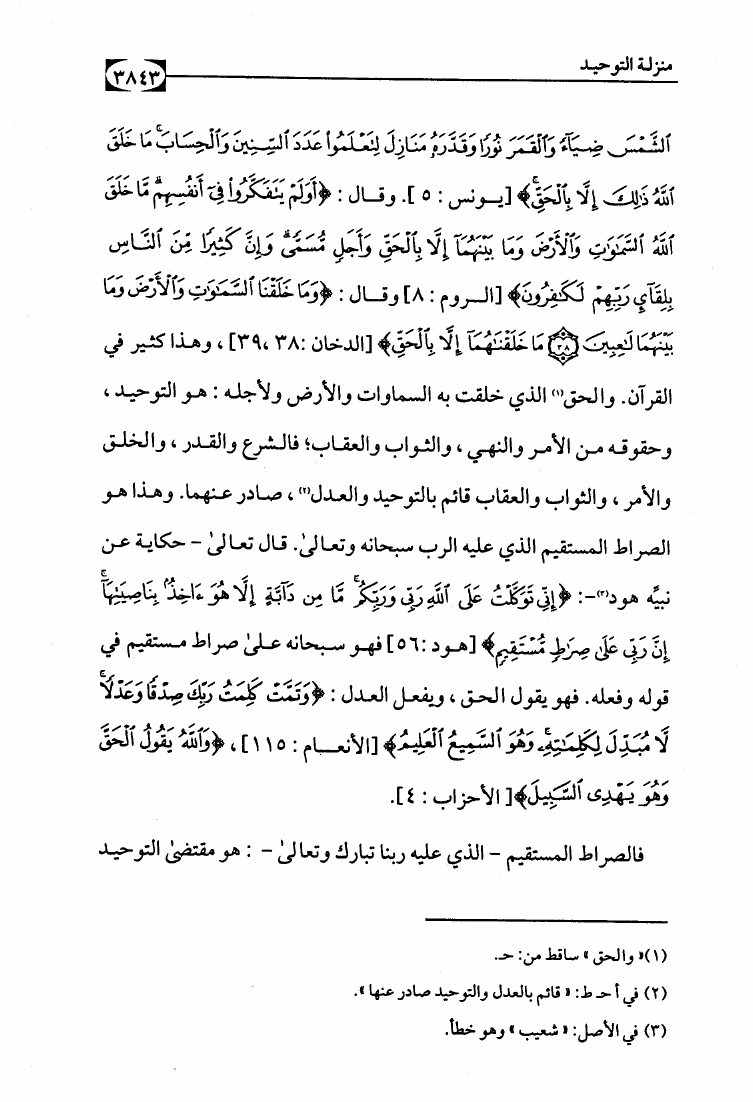 منزلة التوحيد
٣٨٤٣
الشَّمْسَ ضِيَاءً وَالْقَمَرَ نُورًا وَقَدَّرَهُ مَنَازِلَ لِتَعْلَمُوا عَدَدَ السِّنِينَ وَالْحِسَابَ ۚ مَا خَلَقَ
اللَّهُ ذَٰلِكَ إِلَّا بِالْحَقِّ ۚ﴾ [يونس : ٥ ]. وقال : ﴿أَوَلَمْ يَتَفَكَّرُوا فِي أَنفُسِهِم ۗ مَّا خَلَقَ
اللَّهُ السَّمَاوَاتِ وَالْأَرْضَ وَمَا بَيْنَهُمَا إِلَّا بِالْحَقِّ وَأَجَلٍ مُّسَمًّى ۗ وَإِنَّ كَثِيرًا مِّنَ النَّاسِ
بِلِقَاءِ رَبِّهِمْ لَكَافِرُونَ﴾ [الروم : ٨] وقال : ﴿وَمَا خَلَقْنَا السَّمَاوَاتِ وَالْأَرْضَ وَمَا
بَيْنَهُمَا لَاعِبِينَ ۝٣٨ مَا خَلَقْنَاهُمَا إِلَّا بِالْحَقِّ﴾ [الدخان :٣٨ ،٣٩] ، وهذا كثير في
القرآن. والحق(١) الذي خلقت به السماوات والأرض ولأجله : هو التوحيد ،
وحقوقه من الأمر والنهي ، والثواب والعقاب؛ فالشرع والقدر ، والخلق
والأمر ، والثواب والعقاب قائم بالتوحيد والعدل(٢) ، صادر عنهما. وهذا هو
الصراط المستقيم الذي عليه الرب سبحانه وتعالىٰ. قال تعالىٰ - حكاية عن
نبيِّه هود(٣)-: ﴿إِنِّي تَوَكَّلْتُ عَلَى اللَّهِ رَبِّي وَرَبِّكُم ۚ مَّا مِن دَابَّةٍ إِلَّا هُوَ آخِذٌ بِنَاصِيَتِهَا ۚ
إِنَّ رَبِّي عَلَىٰ صِرَاطٍ مُّسْتَقِيمٍ﴾ [هود :٥٦] فهو سبحانه علىٰ صراط مستقيم في
قوله وفعله. فهو يقول الحق ، ويفعل العدل : ﴿وَتَمَّتْ كَلِمَتُ رَبِّكَ صِدْقًا وَعَدْلًا ۚ
لَّا مُبَدِّلَ لِكَلِمَاتِهِ ۚ وَهُوَ السَّمِيعُ الْعَلِيمُ﴾ [الأنعام : ١١٥] ، ﴿وَاللَّهُ يَقُولُ الْحَقَّ
وَهُوَ يَهْدِي السَّبِيلَ﴾[ الأحزاب : ٤].
فالصراط المستقيم - الذي عليه ربنا تبارك وتعالىٰ - : هو مقتضىٰ التوحيد
(١)« والحق » ساقط من: حـ.
(٢) في أ حـ ط: « قائم بالعدل والتوحيد صادر عنها ».
(٣) في الأصل: « شعيب » وهو خطأ.